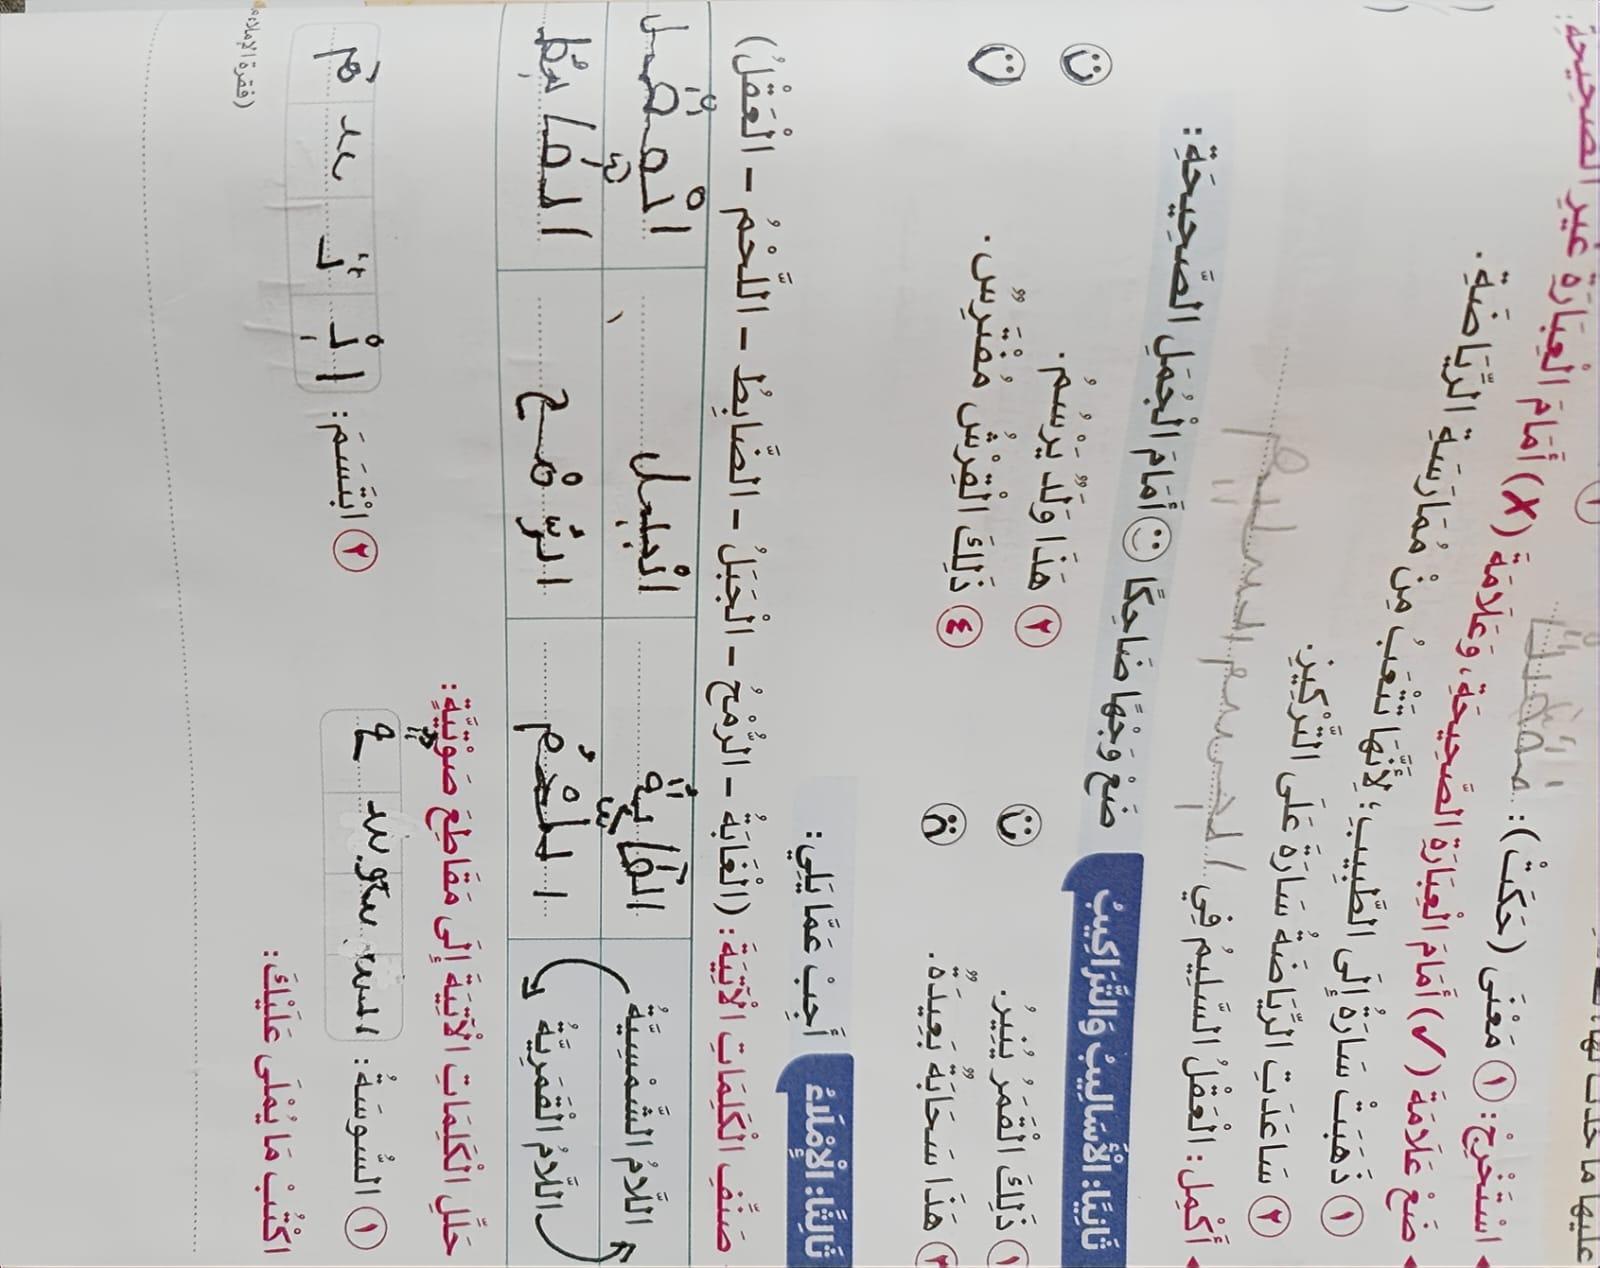 عليها ما حدث لها؛
اسْتَخْرِجْ: ١ مَعْنَى (حَكَتْ):
ضَعْ عَلَامَةَ (✓) أَمَامَ الْعِبَارَةِ الصَّحِيحَةِ، وَعَلَامَةَ (X) أَمَامَ الْعِبَارَةِ غَيْرِ الصَّحِيحَةِ:
١ ذَهَبَتْ سَارَةُ إِلَى الطَّبِيبِ؛ لِأَنَّهَا تَتْعَبُ مِنْ مُمَارَسَةِ الرِّيَاضَةِ.
٢ سَاعَدَتِ الرِّيَاضَةُ سَارَةَ عَلَى التَّرْكِيزِ.
أَكْمِلْ: الْعَقْلُ السَّلِيمُ فِي الجسم السليم
ثَانِيًا: الْأَسَالِيبُ وَالتَّرَاكِيبُ
ضَعْ وَجْهًا ضَاحِكًا أَمَامَ الْجُمَلِ الصَّحِيحَةِ:
١ ذَلِكَ الْقَمَرُ يُنِيرُ.
٢ هَذَا وَلَدٌ يَرْسُمُ.
٣ هَذَا سَحَابَةٌ بَعِيدَةٌ.
٤ ذَلِكَ الْقِرْشُ مُفْتَرِسٌ.
ثَالِثًا: الْإِمْلَاءُ
أَجِبْ عَمَّا يَلِي:
صَنِّفِ الْكَلِمَاتِ الْآتِيَةَ: (الْغَابَةُ - الرُّمْحُ - الْجَبَلُ - الضَّابِطُ - اللَّحْمُ - الْعَقْلُ)
اللَّامُ الشَّمْسِيَّةُ الغابة الْجبل الْعقل
اللَّامُ الْقَمَرِيَّةُ اللحْمُ الرُّمْح الضابط
حَلِّلِ الْكَلِمَاتِ الْآتِيَةَ إِلَى مَقَاطِعَ صَوْتِيَّةٍ:
١ السُّوسَةُ:
٢ ابْتَسَمَ: ابْ تَ سَ مَ
اكْتُبْ مَا يُمْلَى عَلَيْكَ:
(فقرة الإملاء